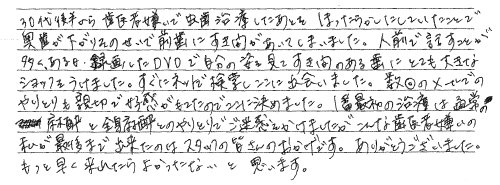 30代後半から歯医者嫌いで虫歯治療したあとも ほったらかしにしていたことで
奥歯が下がりそのせいで前歯にすき間があいてしまいました。人前で話すことが
多く、ある日、録画したDVDで自分の姿を見てすき間のある歯にとても大きな
ショックをうけました。すぐにネットで検索しここに出会いました。数回のメールでの
やりとりも親切で好感がもてたのでここに決めました。1番最初の治療は
麻酔と全身麻酔とのやりとりでご迷惑をかけましたがこんな歯医者嫌いの
私が最後まで出来たのはスタッフの皆さんのおかげです。ありがとうございました。
もっと早く来れたらよかったな…と思います。